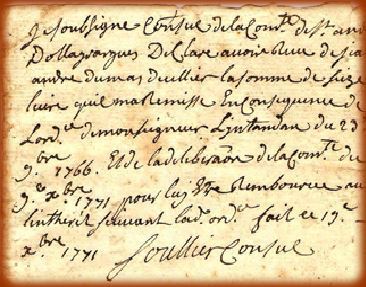 Je soubsigne Consul dela Com.te de St. andre
Dollargargues Declare avoir Reveu de Sieur
andre dumas deullier la somme de seize
livre quil ma Remisse En consequence de
Lord.ce de monseigneur Lintandan du 23
9.bre 1766. Et de la deliberaõn de la Com.te du
9.e x.bre 1771 pour luy Etre Rembource au
linthérit suivant lad. ord.ce fait ce 19.e
x.bre 1771 Soullier Consul